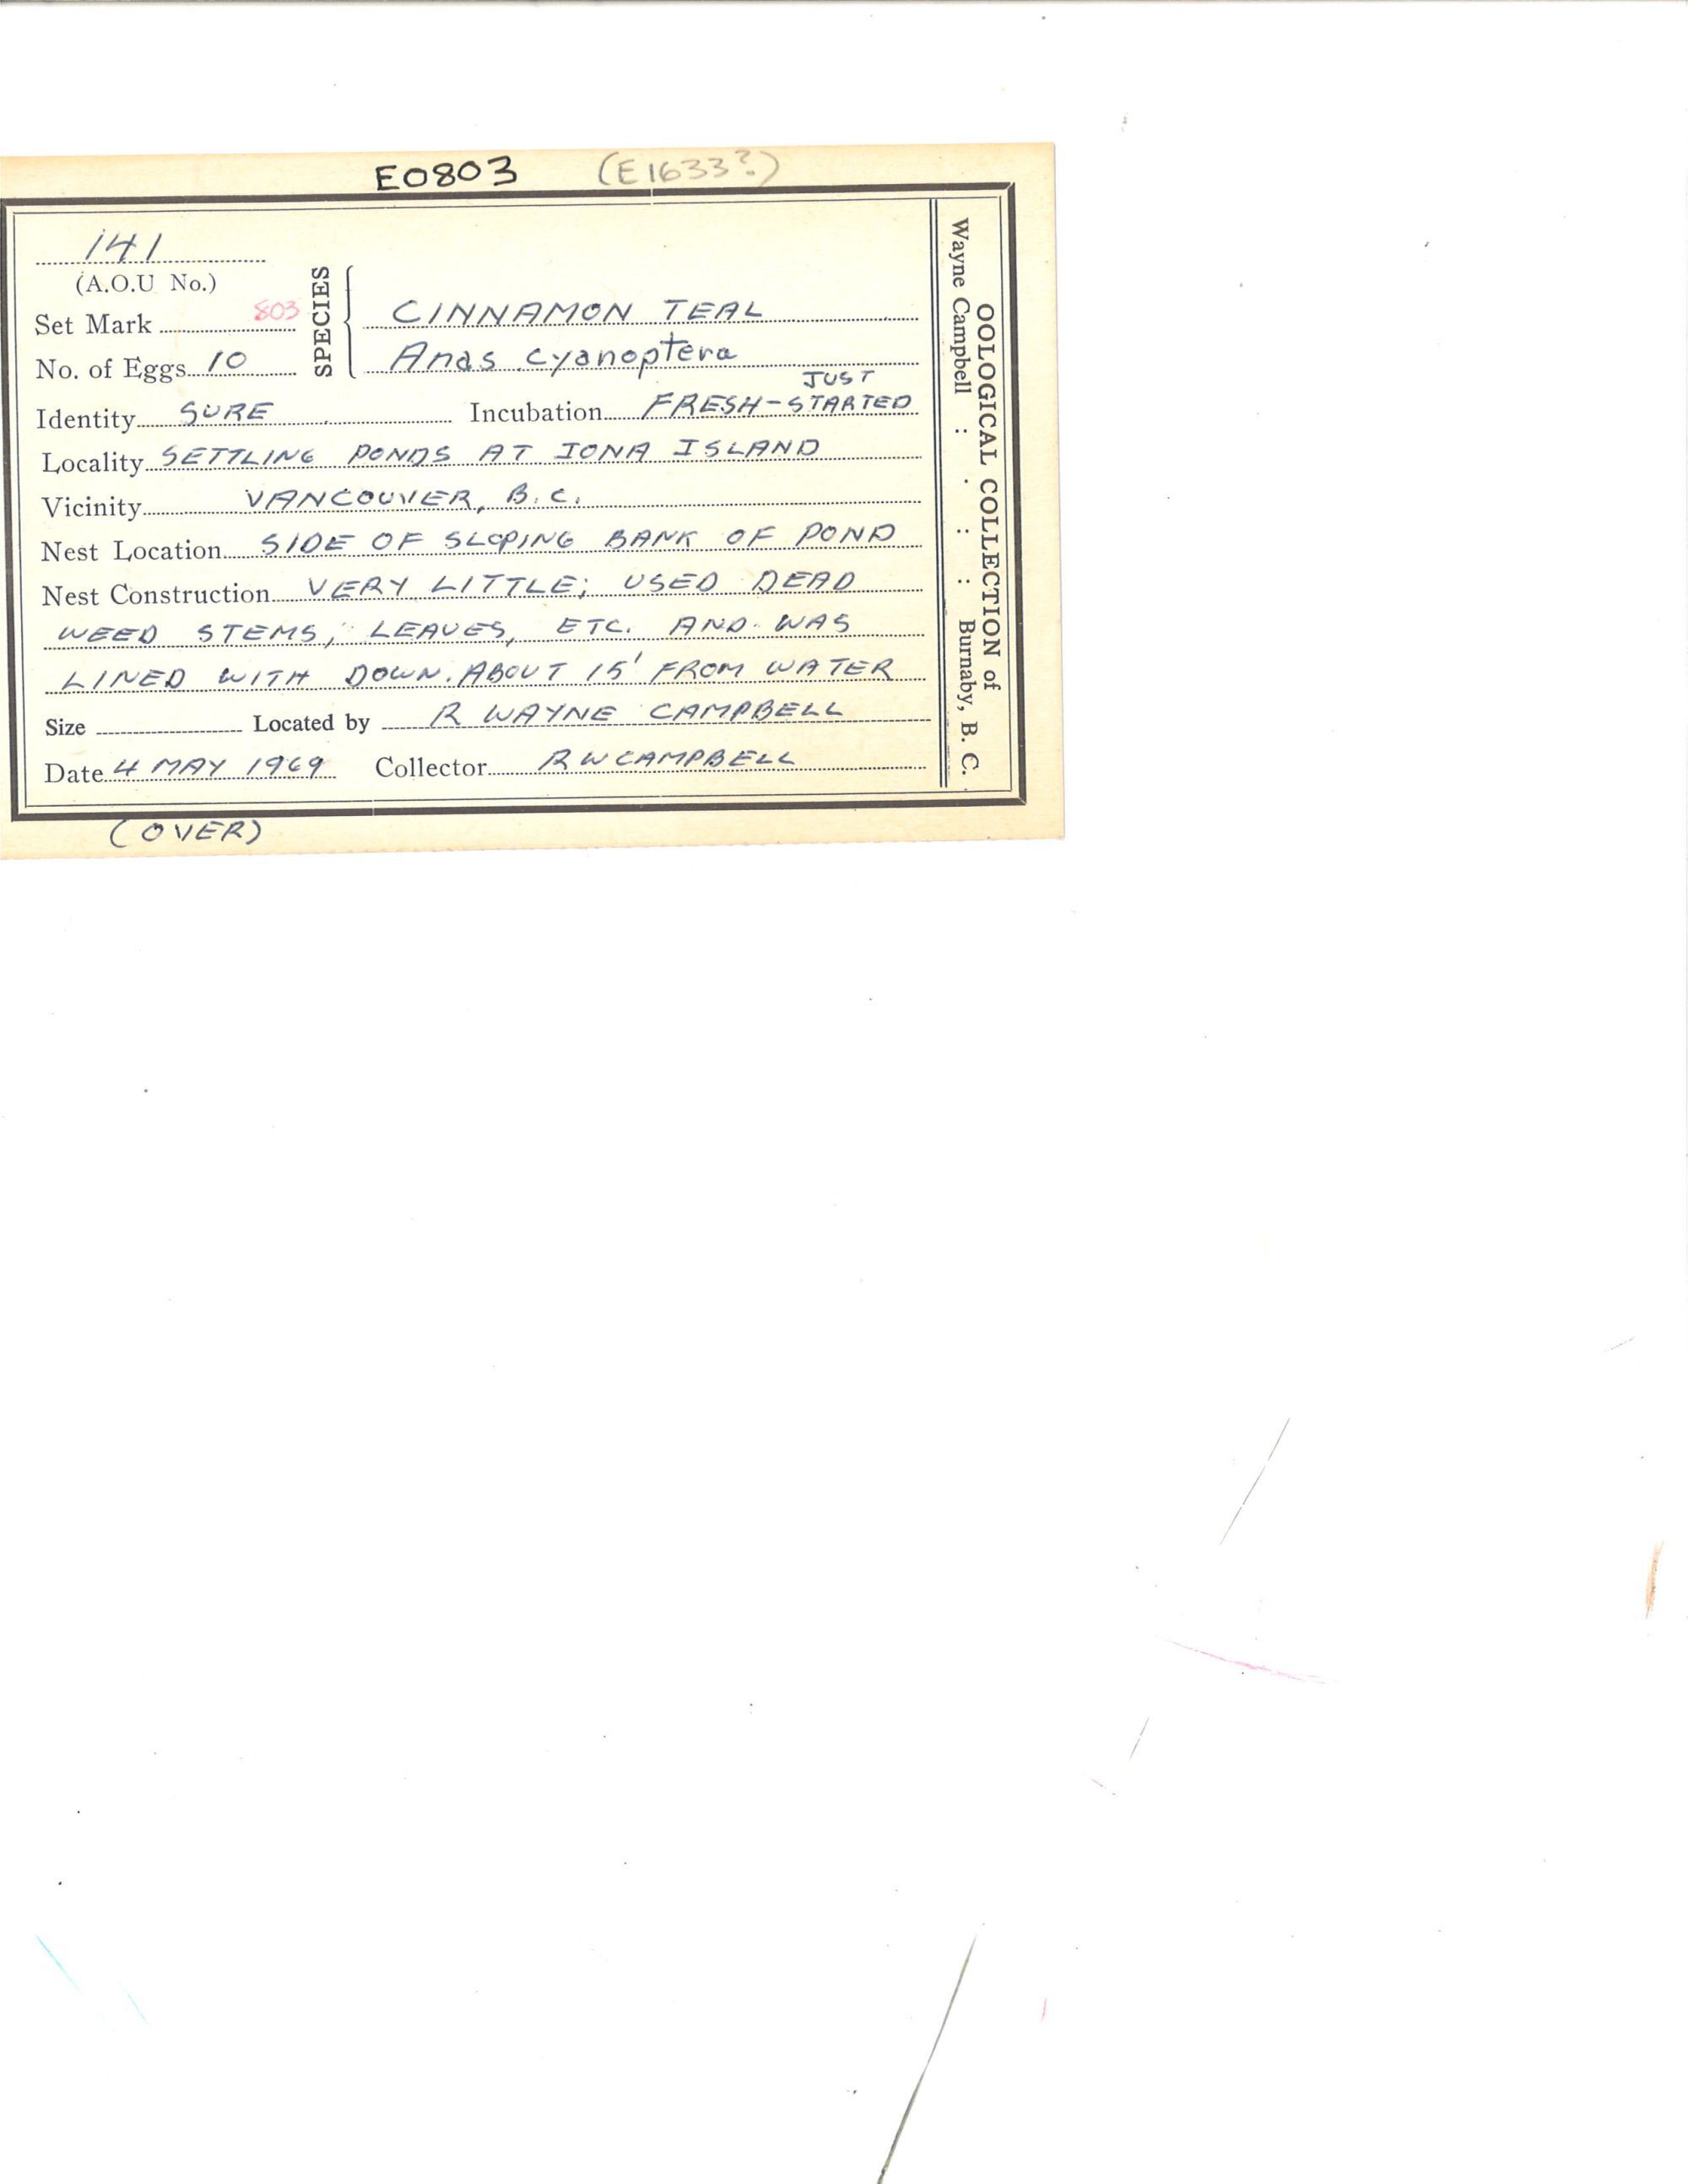 E0803 (E1633?)
141
(A.O.U No.)
Set Mark 803
No. of Eggs 10
SPECIES
CINNAMON TEAL
Anas cyanoptera
Identity SURE Incubation FRESH-JUST STARTED
Locality SETTLING PONDS AT IONA ISLAND
Vicinity VANCOUVER, B.C.
Nest Location SIDE OF SLOPING BANK OF POND
Nest Construction VERY LITTLE; USED DEAD
WEED STEMS, LEAVES, ETC. AND WAS
LINED WITH DOWN. ABOUT 15' FROM WATER
Size Located by R WAYNE CAMPBELL
Date 4 MAY 1969 Collector R W CAMPBELL
(OVER)
OOLOGICAL COLLECTION of
Wayne Campbell : . : : Burnaby, B. C.